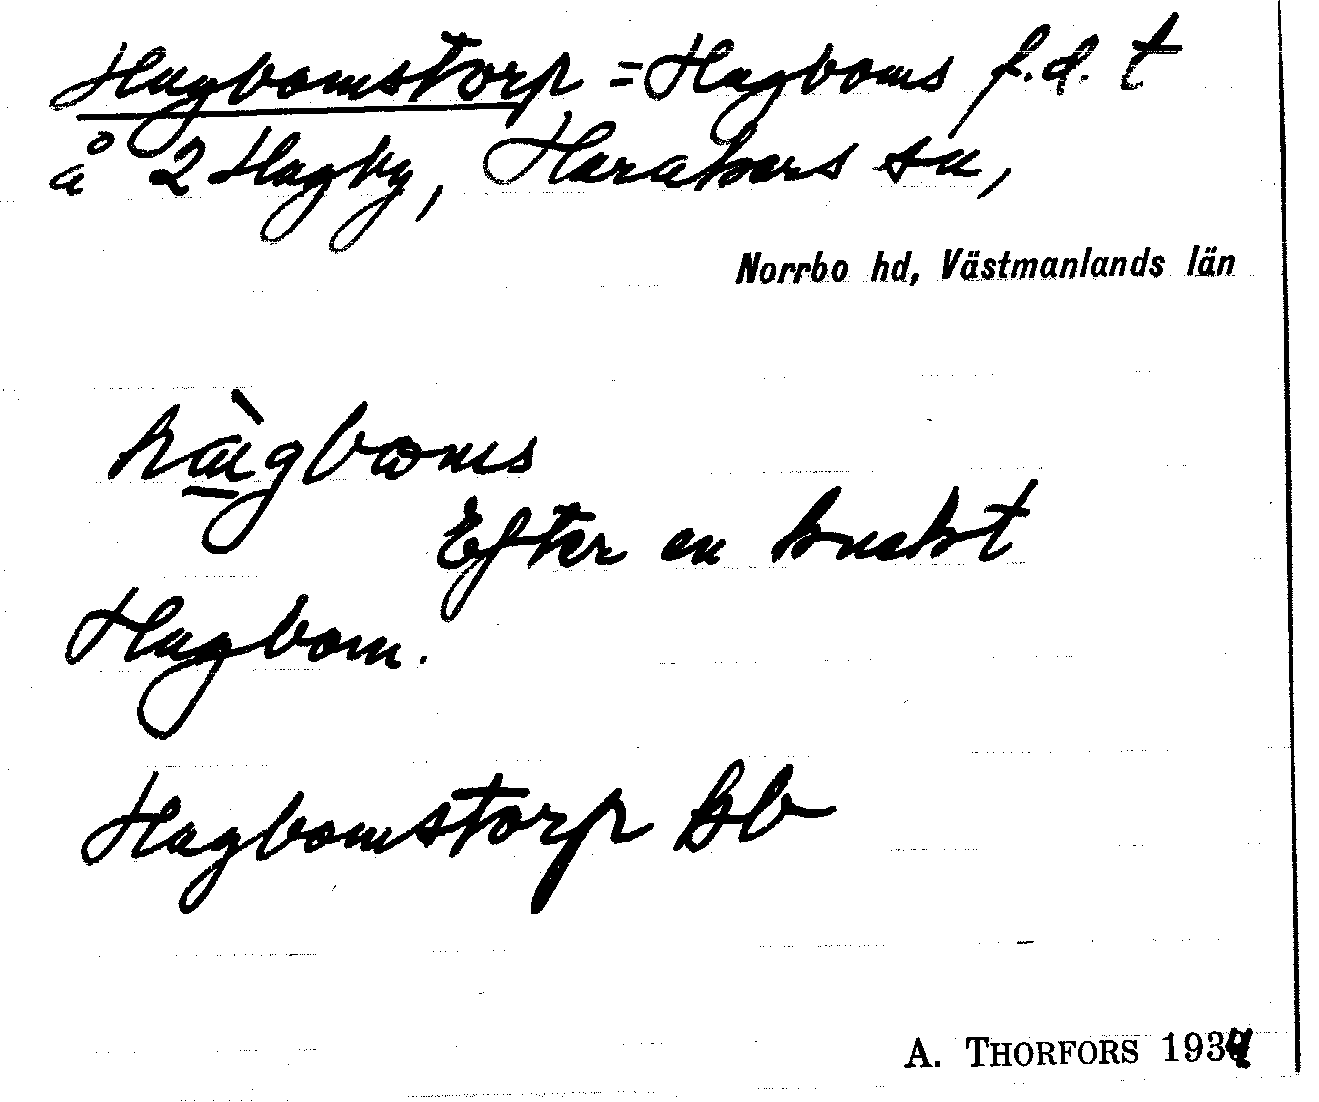 Hagbomstorp = Hagboms f.d. t
å 2 Hagby, Harakers sn,
Norrbo hd, Västmanlands län
Efter en knekt
Hagbom.
Hagbomstorp kb
A. THORFORS 1934